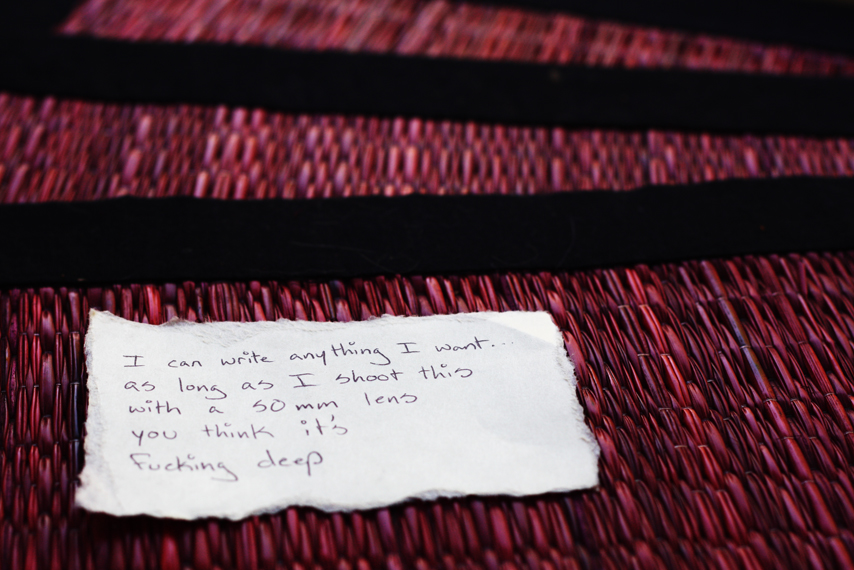 I can write anything I want...
as long as I shoot this
with a 50mm lens
you think it's
Fucking deep